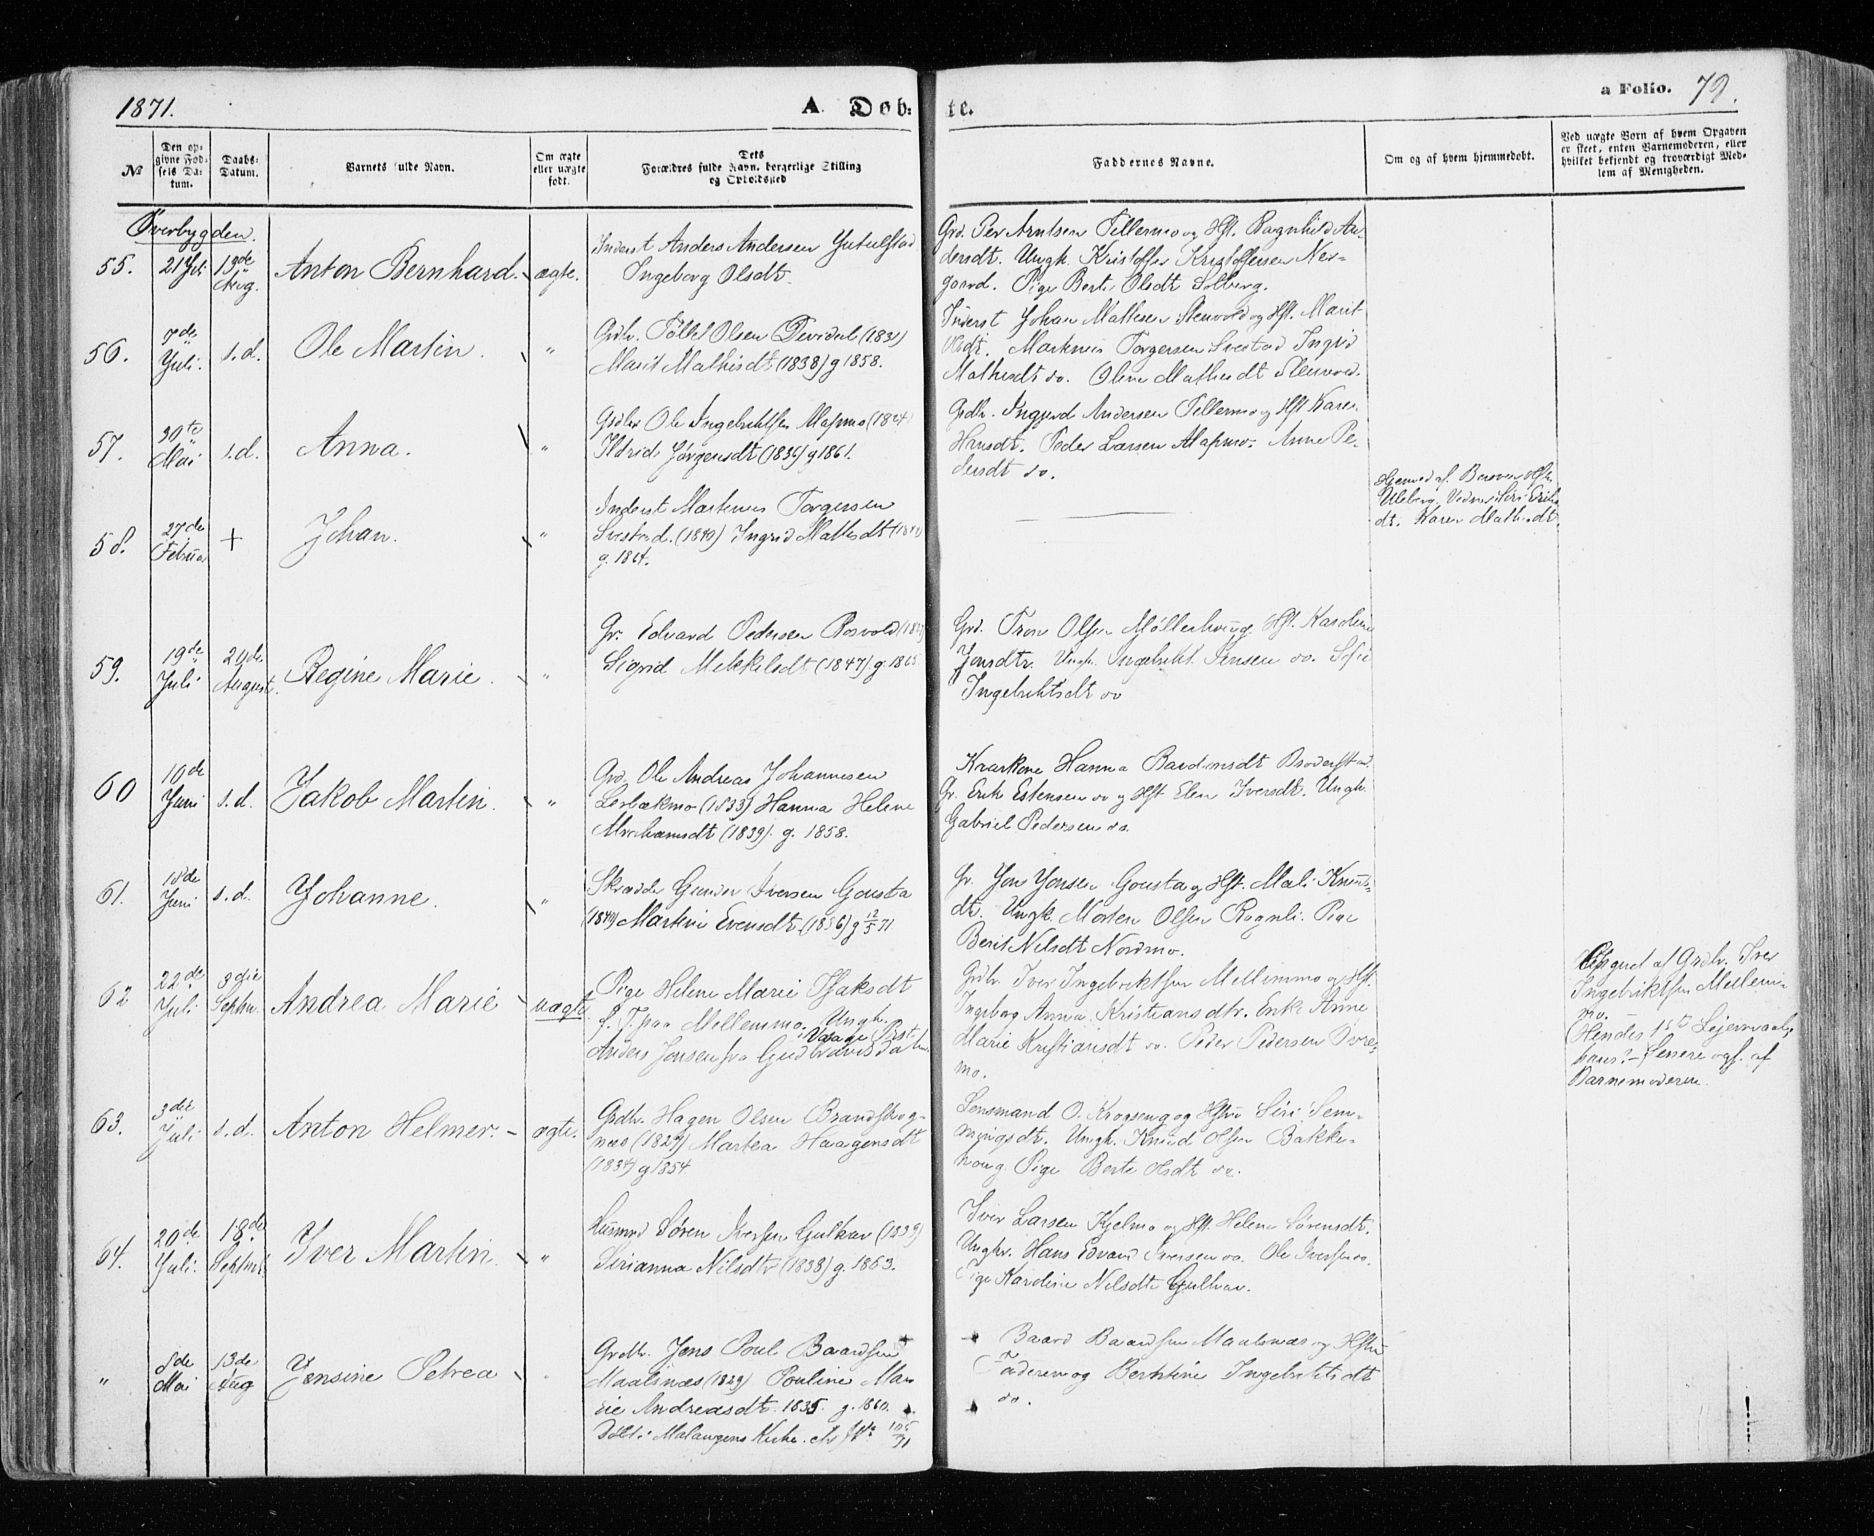 1871.
A Døb:
te.
a Folio. 79.
№
Den op-
givne Fød-
sels Da-
tum.
Daabs-
Datum.
Barnets fulde Navn.
Om ægte
eller uægte
født.
Dets
Forældres fulde Navn, borgerlige Stilling
og Opholdssted
Faddernes Navne.
Om og af hvem hjemmedøbt.
Ved uægte Børn af hvem Opgaven
er skeet, enten Barnemoderen, eller
hvilket bekjendt og troværdigt Med-
lem af Menigheden.
Øverbygden.
55.
21 Juli
13de
Aug.
Anton Bernhard.
ægte.
Inderst Anders Andersen Jutulstad
Ingeborg Olsdt.
Grd. Per Arntsen Fellermo og Hst. Ragnhild An-
dersdt. Ungk. Kristoffer Kristoffersen Ner-
gaard. Pige Berit Olsdt Solberg.
56.
7de
Juli.
s.d.
Ole Martin.
"
Grdbr. Tollef Olsen Devidal (1831)
Marit Mathisdt (1838) g 1858.
Inderst Johan Mathesen Stenvold og Hst. Marit
Olsdt. Martinus Torgersen Svestad Ingrid
Mathisdt do. Oline Mathisdt Stenvold.
57.
30te
Mai
s.d.
Anna.
"
Ole Ingebriktsen Alapmo (1824)
Ildrid Jørgensdt (1836) g 1861.
Grdbr. Ingjerd Andersen Fellermo og Hst Karen
Hansdt. Peder Larsen Alapmo. Anne Pe-
dersdt do.
58.
27de
Februar
+
Johan.
"
Inderst Martinus Torgersen
Svestad. (1840) Ingrid Mathisdt
g. 1864.
Hjemmed af
Uleberg. Vidner Siri Erik
dt. Karen Mathisdt.
59.
19de
Juli
29de
August.
Regine Marie.
"
Gr. Edvard Pedersen Rosvold
Sigrid Mikkelsdt (1847) g. 1865
Grd. Tron Olsen Møllerhaug. Hst. Karoline
Jonsdtr. Ungk. Ingebrikt Jensen do. Sofie
Ingebriktsdt do
60
10de
Juni
s.d.
Jakob Martin.
"
Grd. Ole Andreas Johannesen
Lerbækmo (1833) Hanna Helene
Abrahamsdt (1839). g. 1858.
Hanna Bardonsdt Broderstad.
Gr. Erik Estensen do og Hst Elen Iversdt. Ungk.
Gabriel Pedersen do.
61.
18de
Juni
s.d.
Johanne.
"
Skrædder Gunder Iversen Gousta
(1849) Martine Evensdt. (1836) g 12/5 71
Gr. Jon Jonsen Gousta og Hst. Mali Knuds-
dt. Ungk. Morten Olsen Rognli. Pige
Berit Nilsdt Nordmo.
62
22de
Juli
3die
Septbr.
Andrea Marie
uægte
Pige Helene Marie Isaksdt
f. T. paa Mellemmo. Ungk.
Anders Jonsen fra Gudbrandsdalen.
Grdbr Iver Ingebriktsen Mellemmo og Hst.
Ingebor Anna Kristiansdtr. Enke Anne
Marie Kristiansdt do. Peder Pedersen Øvre-
mo.
Opgivet af Grdbr. Iver
Ingebriktsen Mellem-
mo.
(Hendes 1ste Leiermaal,
hans? – Senere opg. af
Barnemoderen.
63.
3die
Juli
s.d.
Anton Helmer.
ægte.
Grdbr. Hagen Olsen Brandskog-
næs (1827) Martea Haagensdt
(1834) g 1854
Lensmand O. Krogseng og Hstru Siri Sem-
mingsdt. Ungk. Knud Olsen Bakke-
haug Pige Berte Olsdt do.
64.
20de
Juli.
18de
Septemb
Iver Martin.
"
Husmd Søren Iversen Gulhav (1839)
Sirianna Nilsdt (1838) g. 1863.
Iver Larsen Kjelmo og Hst. Helene Sørensdt.
Ungkr. Hans Edvard Iversen do. Ole Iversen do.
Pige Karoline Nilsdt Gulhav.
"
8de
Mai
13de
Aug
Jensine Petrea
"
Grdbr. Jens Poul Baardsen
Maalsnæs (1829) Pauline Ma-
rie Andreasdt. 1835. g. 1860.
Døbt i Malangens Kirke.
Baard Baardsen Maalsnæs og Hstru
Faderen og Berntine Ingebriktsdt
do.